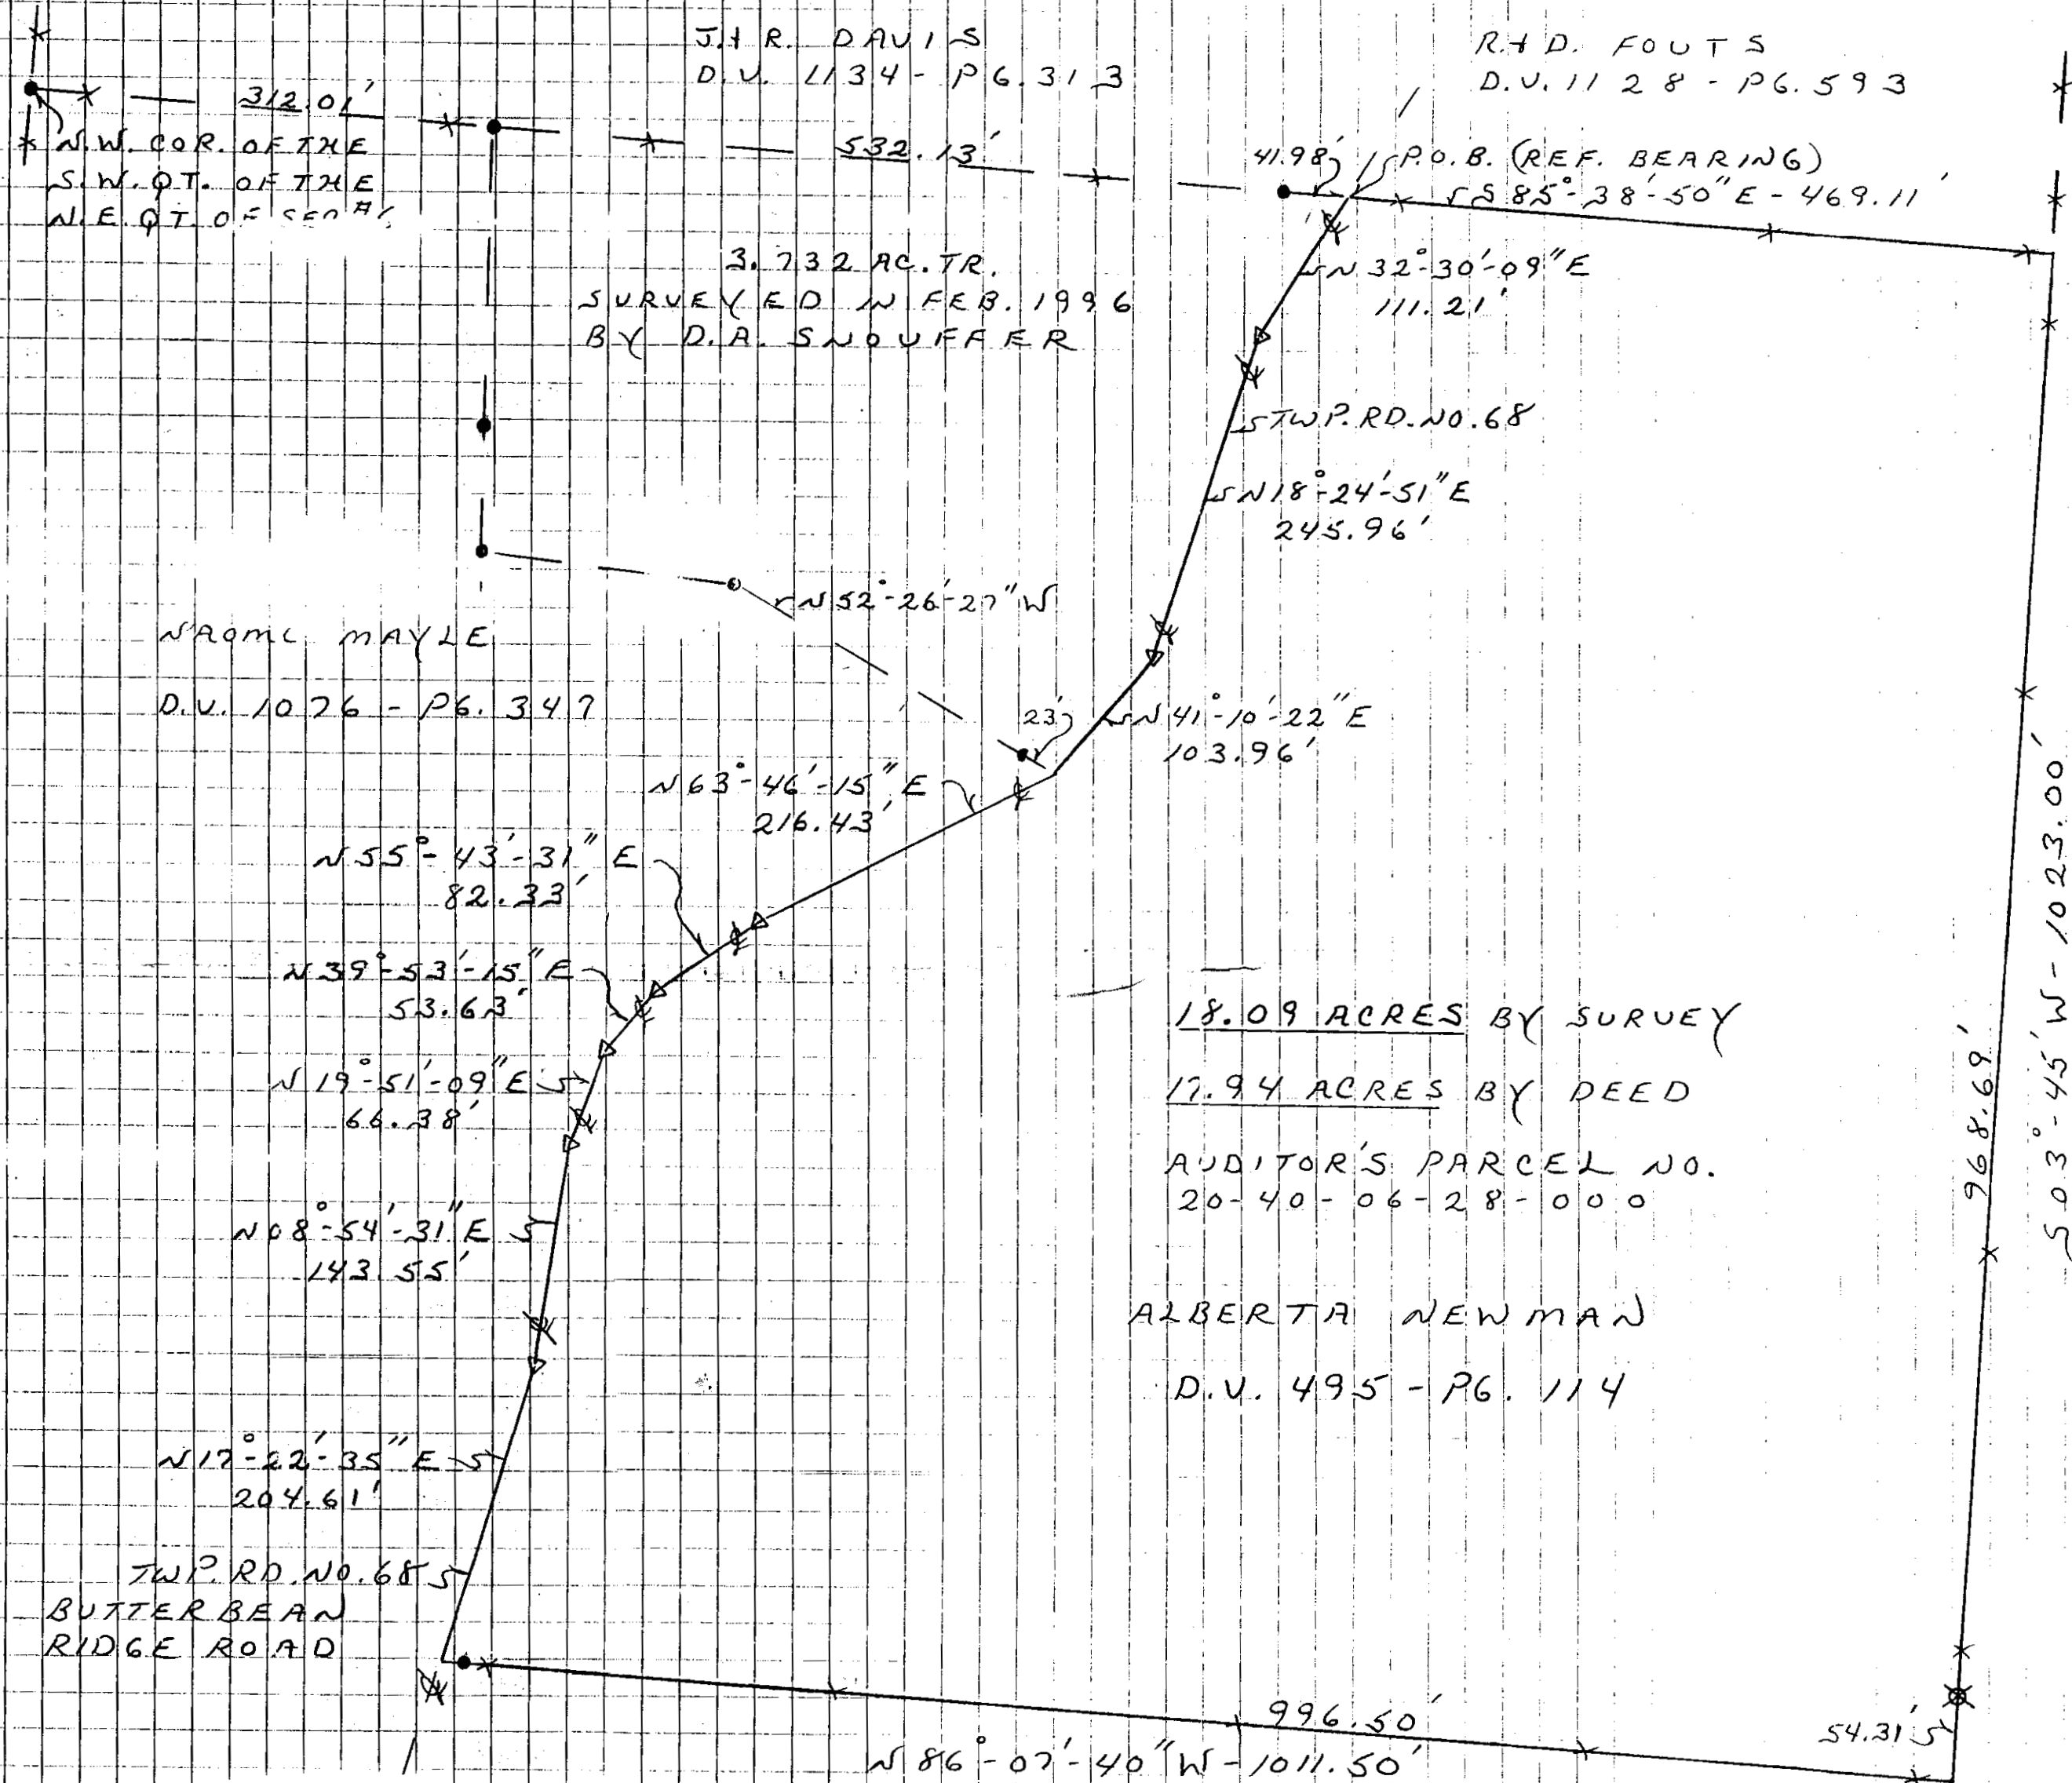 J. & R. DAVIS
D.V. 1134 - PG. 313
R. & D. FOUTS
D.V. 1128 - PG. 593
312.01'
N.W. COR. OF THE
S.W. QT. OF THE
N.E. QT. OF
532.13'
41.98'
P.O.B. (REF. BEARING)
S 85°-38'-50" E - 469.11'
3.732 AC. TR.
SURVEYED IN FEB. 1996
BY D.A. SNOUFFER
N 32°-30'-09" E
111.21'
TWP. RD. NO. 68
N 18°-24'-51" E
245.96'
N 52°-26'-27" W
NAOMI MAYLE
D.V. 1076 - PG. 347
23'
N 41°-10'-22" E
103.96'
N 63°-46'-15" E
216.43'
N 55°-43'-31" E
82.33'
N 39°-53'-15" E
53.63'
N 19°-51'-09" E
66.38'
N 08°-54'-31" E
143.55'
N 17°-22'-35" E
204.61'
TWP. RD. NO. 68
BUTTER BEAN
RIDGE ROAD
18.09 ACRES BY SURVEY
17.94 ACRES BY DEED
AUDITOR'S PARCEL NO.
20-40-06-28-000
ALBERTA NEWMAN
D.V. 495 - PG. 114
968.69'
S 03°-45' W - 1023.00'
996.50'
54.31'
N 86°-07'-40" W - 1011.50'